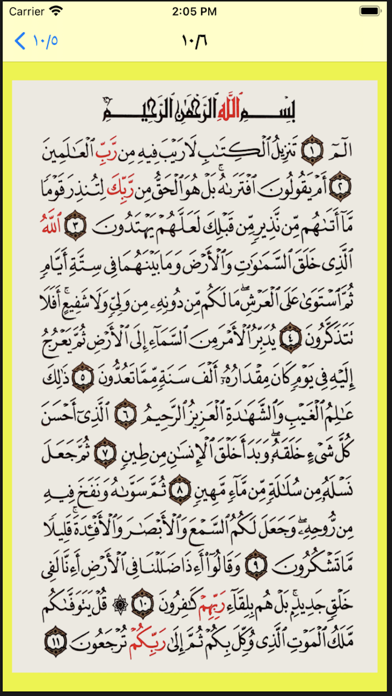 Carrier 2:05 PM
١٠/٥ ١٠/٦
بِسْمِ ٱللَّهِ ٱلرَّحْمَٰنِ ٱلرَّحِيمِ
الٓمٓ ١ تَنزِيلُ ٱلْكِتَٰبِ لَا رَيْبَ فِيهِ مِن رَّبِّ ٱلْعَٰلَمِينَ
٢ أَمْ يَقُولُونَ ٱفْتَرَىٰهُ ۚ بَلْ هُوَ ٱلْحَقُّ مِن رَّبِّكَ لِتُنذِرَ قَوْمًا
مَّآ أَتَىٰهُم مِّن نَّذِيرٍ مِّن قَبْلِكَ لَعَلَّهُمْ يَهْتَدُونَ ٣ ٱللَّهُ
ٱلَّذِى خَلَقَ ٱلسَّمَٰوَٰتِ وَٱلْأَرْضَ وَمَا بَيْنَهُمَا فِى سِتَّةِ أَيَّامٍ
ثُمَّ ٱسْتَوَىٰ عَلَى ٱلْعَرْشِ ۖ مَا لَكُم مِّن دُونِهِۦ مِن وَلِىٍّ وَلَا شَفِيعٍ ۚ أَفَلَا
تَتَذَكَّرُونَ ٤ يُدَبِّرُ ٱلْأَمْرَ مِنَ ٱلسَّمَآءِ إِلَى ٱلْأَرْضِ ثُمَّ يَعْرُجُ
إِلَيْهِ فِى يَوْمٍ كَانَ مِقْدَارُهُۥٓ أَلْفَ سَنَةٍ مِّمَّا تَعُدُّونَ ٥ ذَٰلِكَ
عَٰلِمُ ٱلْغَيْبِ وَٱلشَّهَٰدَةِ ٱلْعَزِيزُ ٱلرَّحِيمُ ٦ ٱلَّذِىٓ أَحْسَنَ
كُلَّ شَىْءٍ خَلَقَهُۥ ۖ وَبَدَأَ خَلْقَ ٱلْإِنسَٰنِ مِن طِينٍ ٧ ثُمَّ جَعَلَ
نَسْلَهُۥ مِن سُلَٰلَةٍ مِّن مَّآءٍ مَّهِينٍ ٨ ثُمَّ سَوَّىٰهُ وَنَفَخَ فِيهِ
مِن رُّوحِهِۦ ۖ وَجَعَلَ لَكُمُ ٱلسَّمْعَ وَٱلْأَبْصَٰرَ وَٱلْأَفْـِٔدَةَ ۚ قَلِيلًا
مَّا تَشْكُرُونَ ٩ وَقَالُوٓا۟ أَءِذَا ضَلَلْنَا فِى ٱلْأَرْضِ أَءِنَّا لَفِى
خَلْقٍ جَدِيدٍۭ ۚ بَلْ هُم بِلِقَآءِ رَبِّهِمْ كَٰفِرُونَ ١٠ ۞ قُلْ يَتَوَفَّىٰكُم
مَّلَكُ ٱلْمَوْتِ ٱلَّذِى وُكِّلَ بِكُمْ ثُمَّ إِلَىٰ رَبِّكُمْ تُرْجَعُونَ ١١